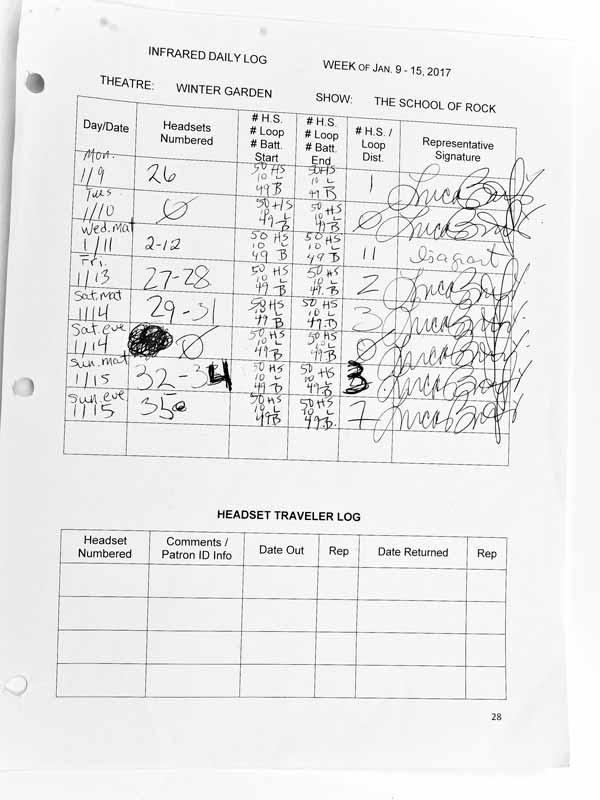 INFRARED DAILY LOG WEEK OF JAN. 9 - 15, 2017
THEATRE: WINTER GARDEN SHOW: THE SCHOOL OF ROCK
Day/Date
Headsets
Numbered
# H.S.
# Loop
# Batt.
Start
# H.S.
# Loop
# Batt.
End
# H.S. /
Loop
Dist.
Representative
Signature
Mon.
1/9 26
50 HS
10 L
49 B
50 HS
10 L
49 B
1
Tues
1/10 Ø
50 HS
49 B
50 HS
10 L
49 B
Ø
Wed. Mat
1/11 2-12
50 HS
10 L
49 B
50 HS
10 L
49 B
11
Fri.
1/13 27-28
50 HS
10 L
49 B
50 HS
10 L
49 B
2
Sat. mat
1/14 29-31
50 HS
10 L
49 B
50 HS
10 L
49 B
3
Sat. eve
1/14 Ø
50 HS
10 L
49 B
50 HS
10 L
49 B
Ø
Sun. mat
1/15 32-34
50 HS
10 L
49 B
50 HS
10 L
49 B
3
Sun. eve
1/15 35
50 HS
10 L
49 B
50 HS
10 L
49 B
HEADSET TRAVELER LOG
Headset
Numbered
Comments /
Patron ID Info
Date Out
Rep
Date Returned
Rep
28